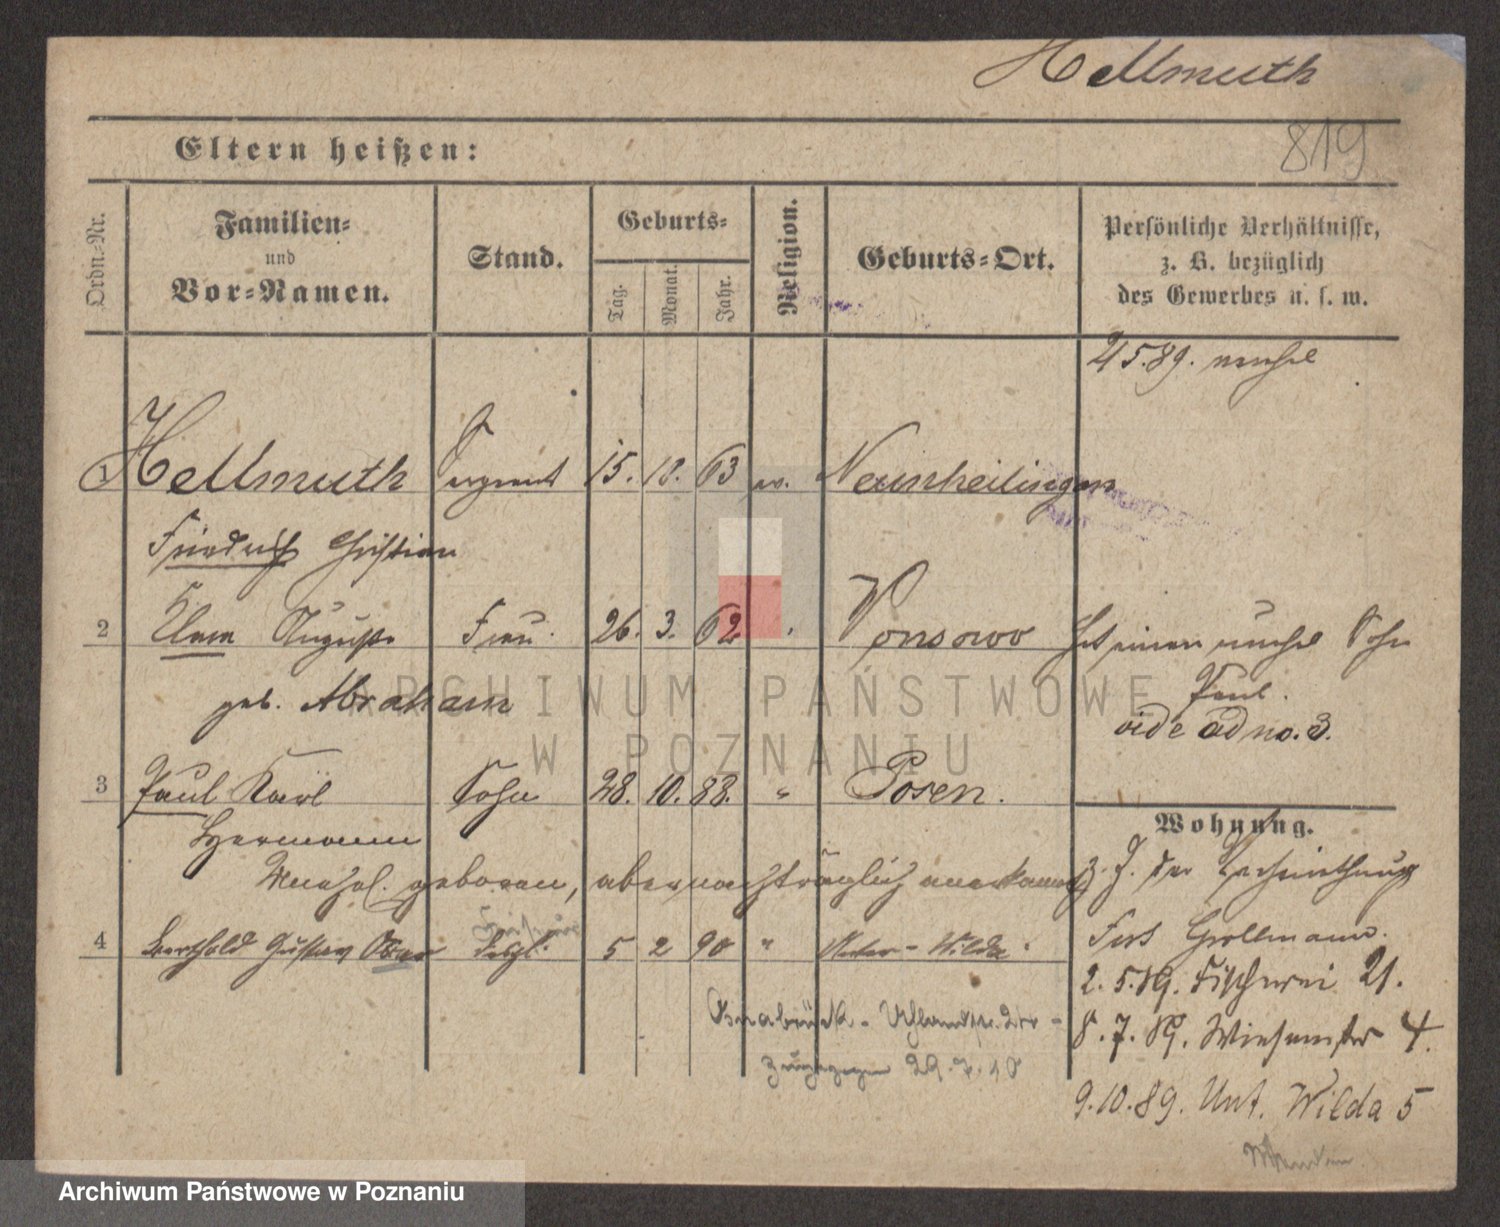 Hellmuth
819
Eltern heißen:
Ordn.-Nr.
Familien-
und
Vor-Namen.
Stand.
Geburts-
Tag.
Monat.
Jahr.
Religion.
Geburts-Ort.
Persönliche Verhältnisse,
z. B. bezüglich
des Gewerbes u. s. w.
2/5.89.
1 Hellmuth Sergeant 15. 10. 63 ev. Neunheilingen
Friedrich Christian
2 Auguste Frau. 26. 3. 62 Ponsowo Hat einen unehel Sohn
geb. Abraham
Paul.
vide ad no. 3.
3 Paul Karl Sohn 28. 10. 88. " Posen.
Hermann
Wohnung.
Unehel. geboren, aber nachträglich anerkannt
z. Z. der Verheirathung
Fort Grollmann.
4 Berthold Gustav Oscar 5 2 90 " Unter-Wilda.
2.5.89. Fischerei 21.
Osnabrück - Uhlandstr.
8.7.89. Wiesenstr 4.
zugezogen 29.7.10
9.10.89. Unt. Wilda 5
ARCHIWUM PAŃSTWOWE
W POZNANIU
Archiwum Państwowe w Poznaniu